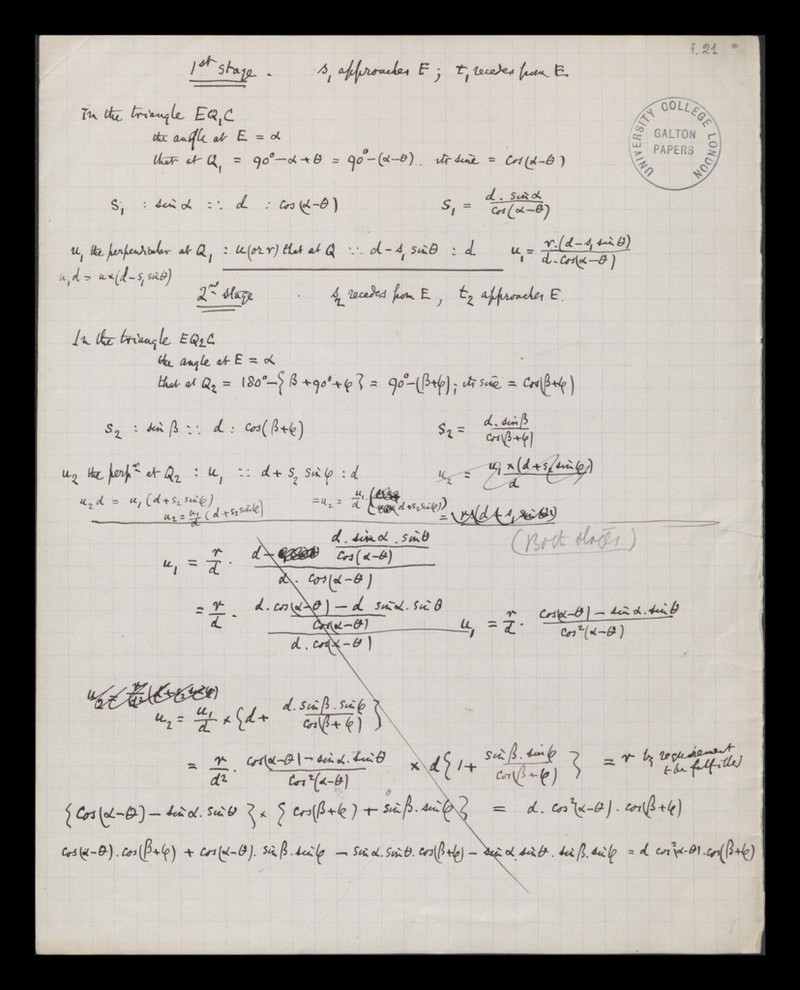 f. 21
1st Stage. s₁ approaches E ; t₁ recedes from E.
UNIVERSITY COLLEGE LONDON
GALTON
PAPERS
In the triangle EQ₁C
the angle at E = α
that at Q₁ = 90°−α+θ = 90°−(α−θ). its sine = Cos(α−θ)
S₁ : sin α :: d : cos(α−θ) S₁ = d. sin α / cos(α−θ)
u₁ the perpendicular at Q₁ : u (or r) that at Q :: d−s₁ sin θ : d u₁ = r.(d−s₁ sin θ) / d. cos(α−θ)
u₁d = u×(d−s₁ sin θ)
2nd Stage s₂ recedes from E, t₂ approaches E.
In the triangle EQ₂C
the angle at E = α
that at Q₂ = 180°−{β+90°+φ} = 90°−(β+φ); its sine = Cos(β+φ)
S₂ : sin β :: d : cos(β+φ) S₂ = d. sin β / cos(β+φ)
u₂ the perpr at Q₂ : u₁ :: d + s₂ sin φ : d u₂ = u₁ × (d+s₂ sin φ) / d
u₂ d = u₁ (d+s₂ sin φ) = u₂ = u₁/d (d+s₂ sin φ)
u₂ = u₁/d (d+s₂ sin φ)
(Both stages)
u₁ = r/d . d − d. sin α. sin θ / cos(α−θ) / d. cos(α−θ)
= r/d . d. cos(α−θ) − d sin α. sin θ / cos(α−θ) / d. cos(α−θ) u₁ = r/d . cos(α−θ) − sin α. sin θ / cos²(α−θ)
u₂ = u₁/d × {d + d. sin β. sin φ / cos(β+φ)}
= r/d² . cos(α−θ) − sin α. sin θ / cos²(α−θ) × d{1 + sin β. sin φ / cos(β+φ)} = r by requirement to be fulfilled
{cos(α−θ) − sin α. sin θ} × {cos(β+φ) + sin β. sin φ} = d. cos²(α−θ). cos(β+φ)
cos(α−θ). cos(β+φ) + cos(α−θ). sin β. sin φ − sin α. sin θ. cos(β+φ) − sin α. sin θ. sin β. sin φ = d cos²(α−θ). cos(β+φ)